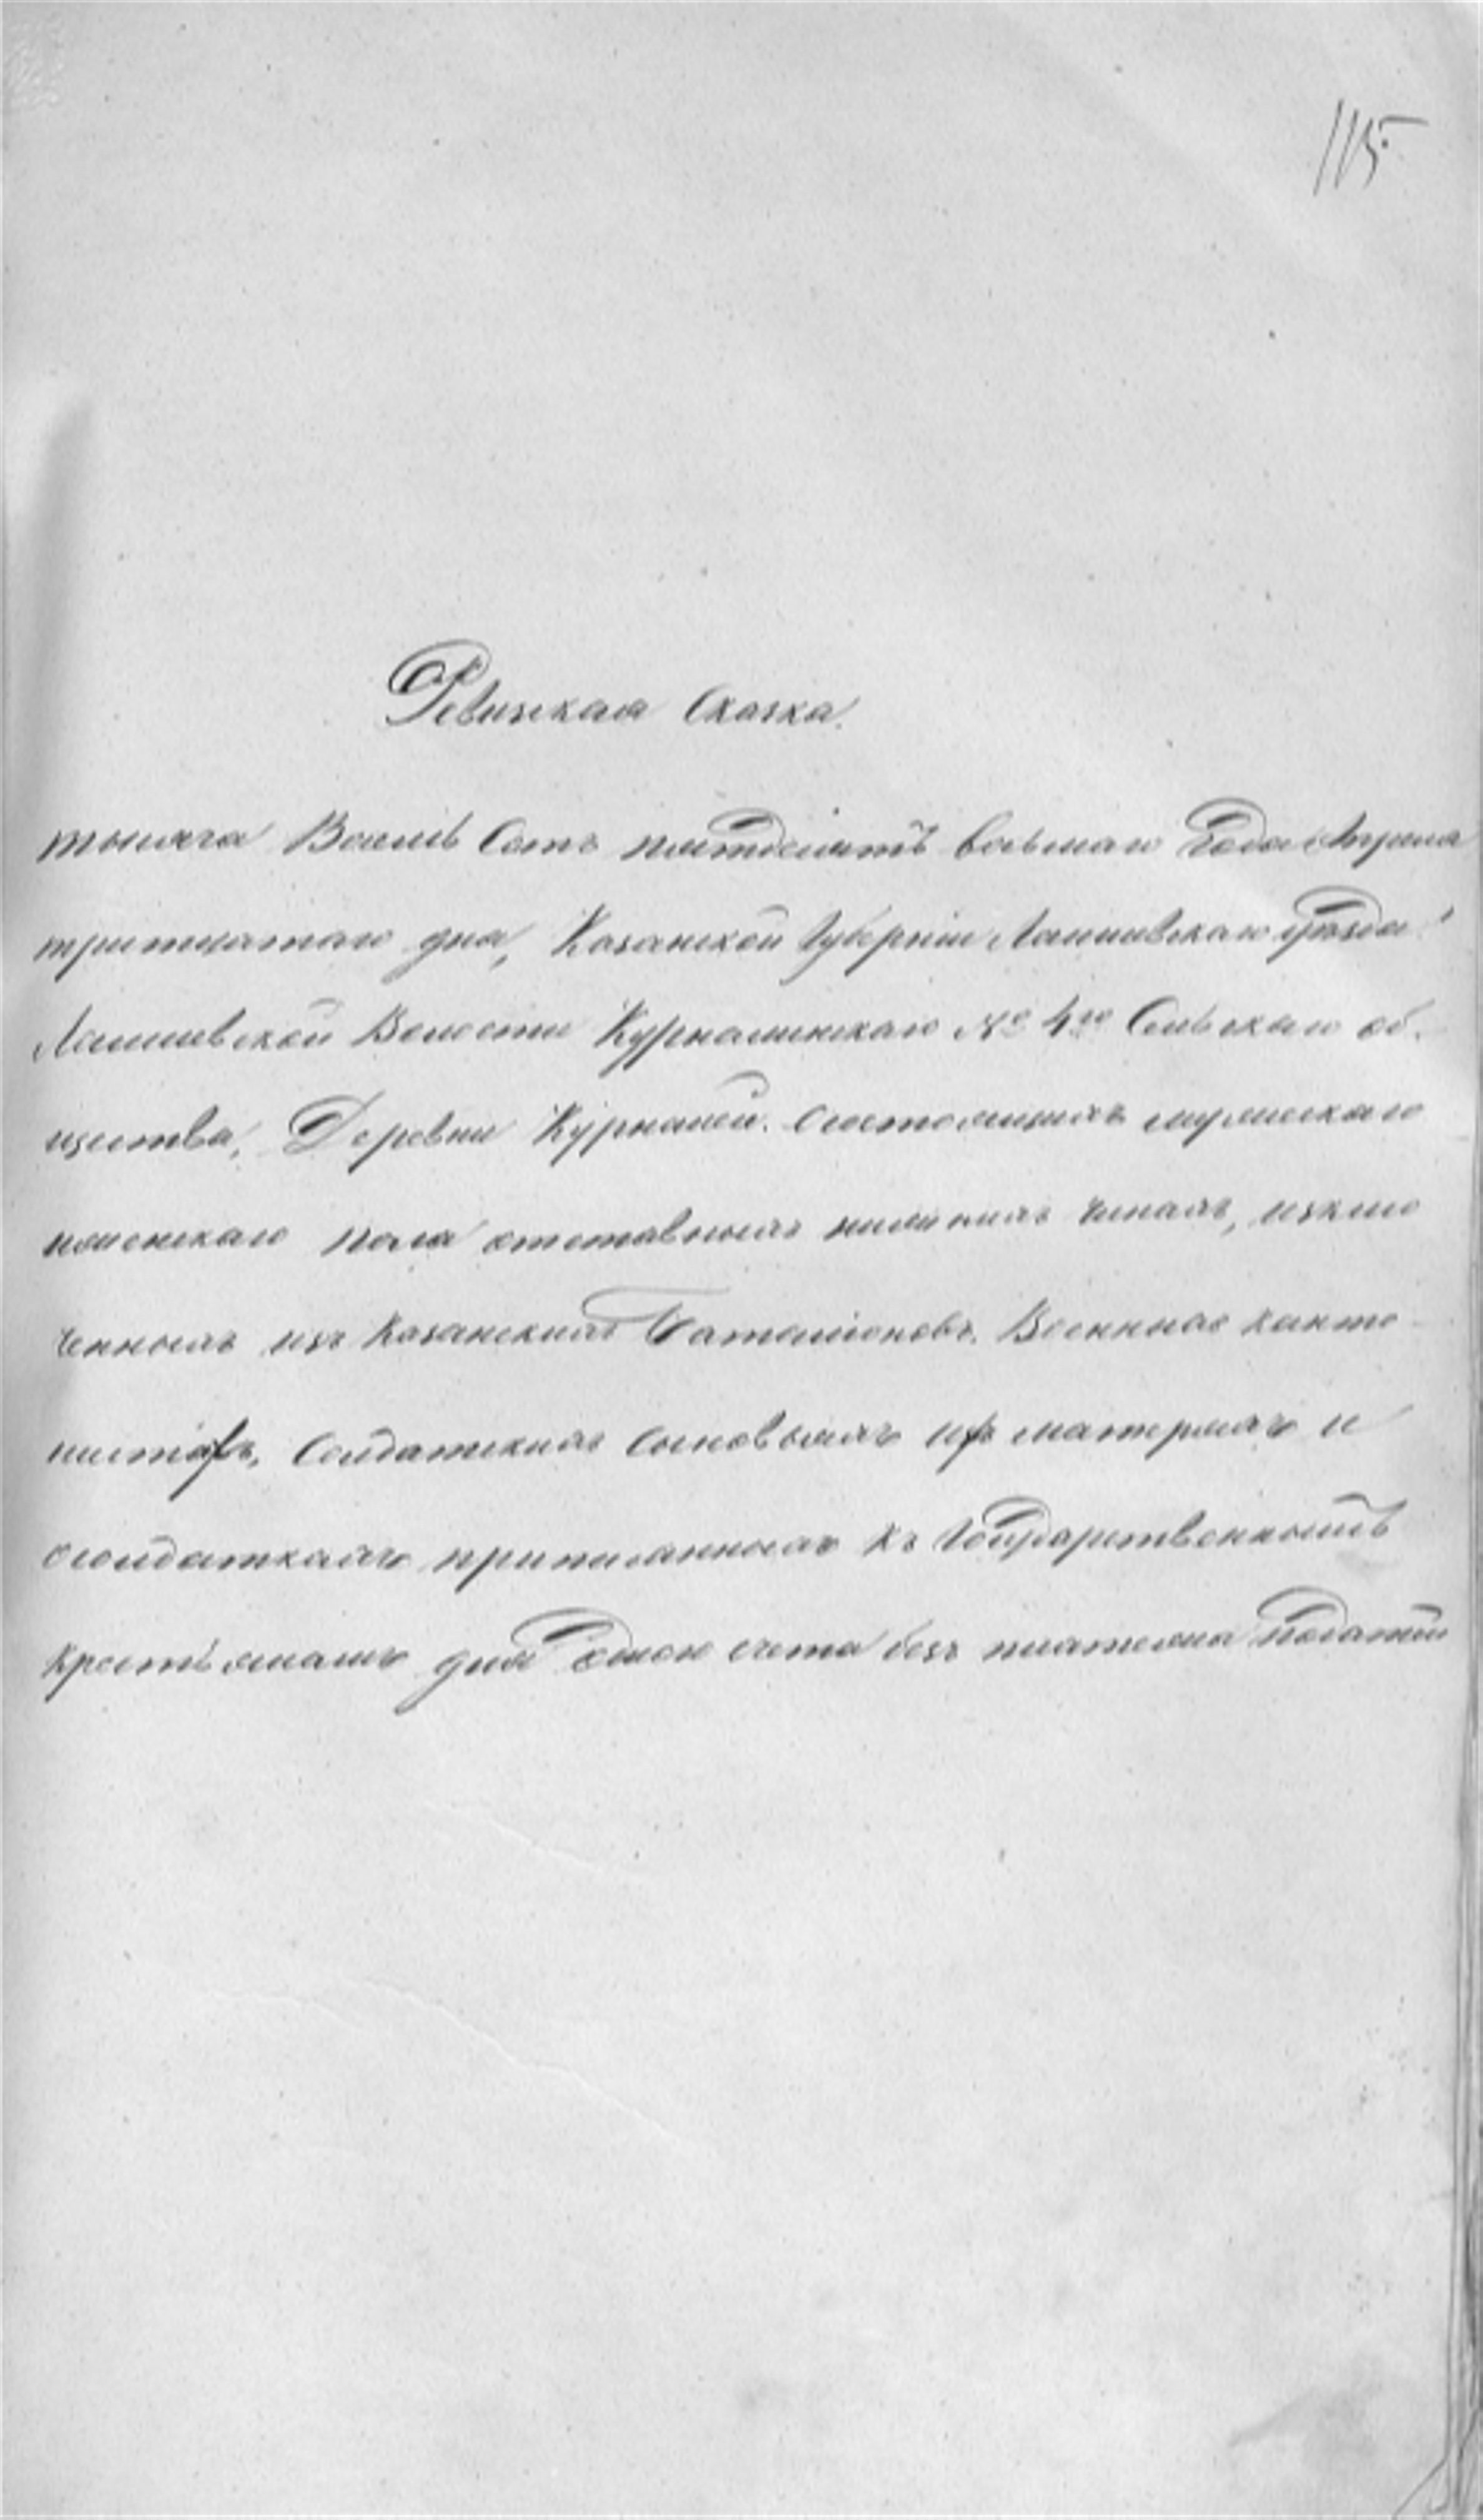 115
Ревизская Сказка.
тысяча Восемь Сотъ пятдесятъ восьмаго Года Апреля
тритцатаго дня, Казанской Губерніи Лаишевскаго уѣзда
Лаишевской Волости Курналинскаго № 4го Сельскаго об.
щества, Деревни Курналей. состоящихъ мужескаго
женскаго пола отставныхъ нижнихъ чинахъ, изклю
ченныхъ изъ Казанскихъ Баталіоновъ. Военныхъ канто
нистахъ, Солдатскихъ сыновьяхъ ихъ матеряхъ и
солдаткахъ приписанныхъ къ Государственнымъ
крестьянамъ для одного счета безъ платежа податей